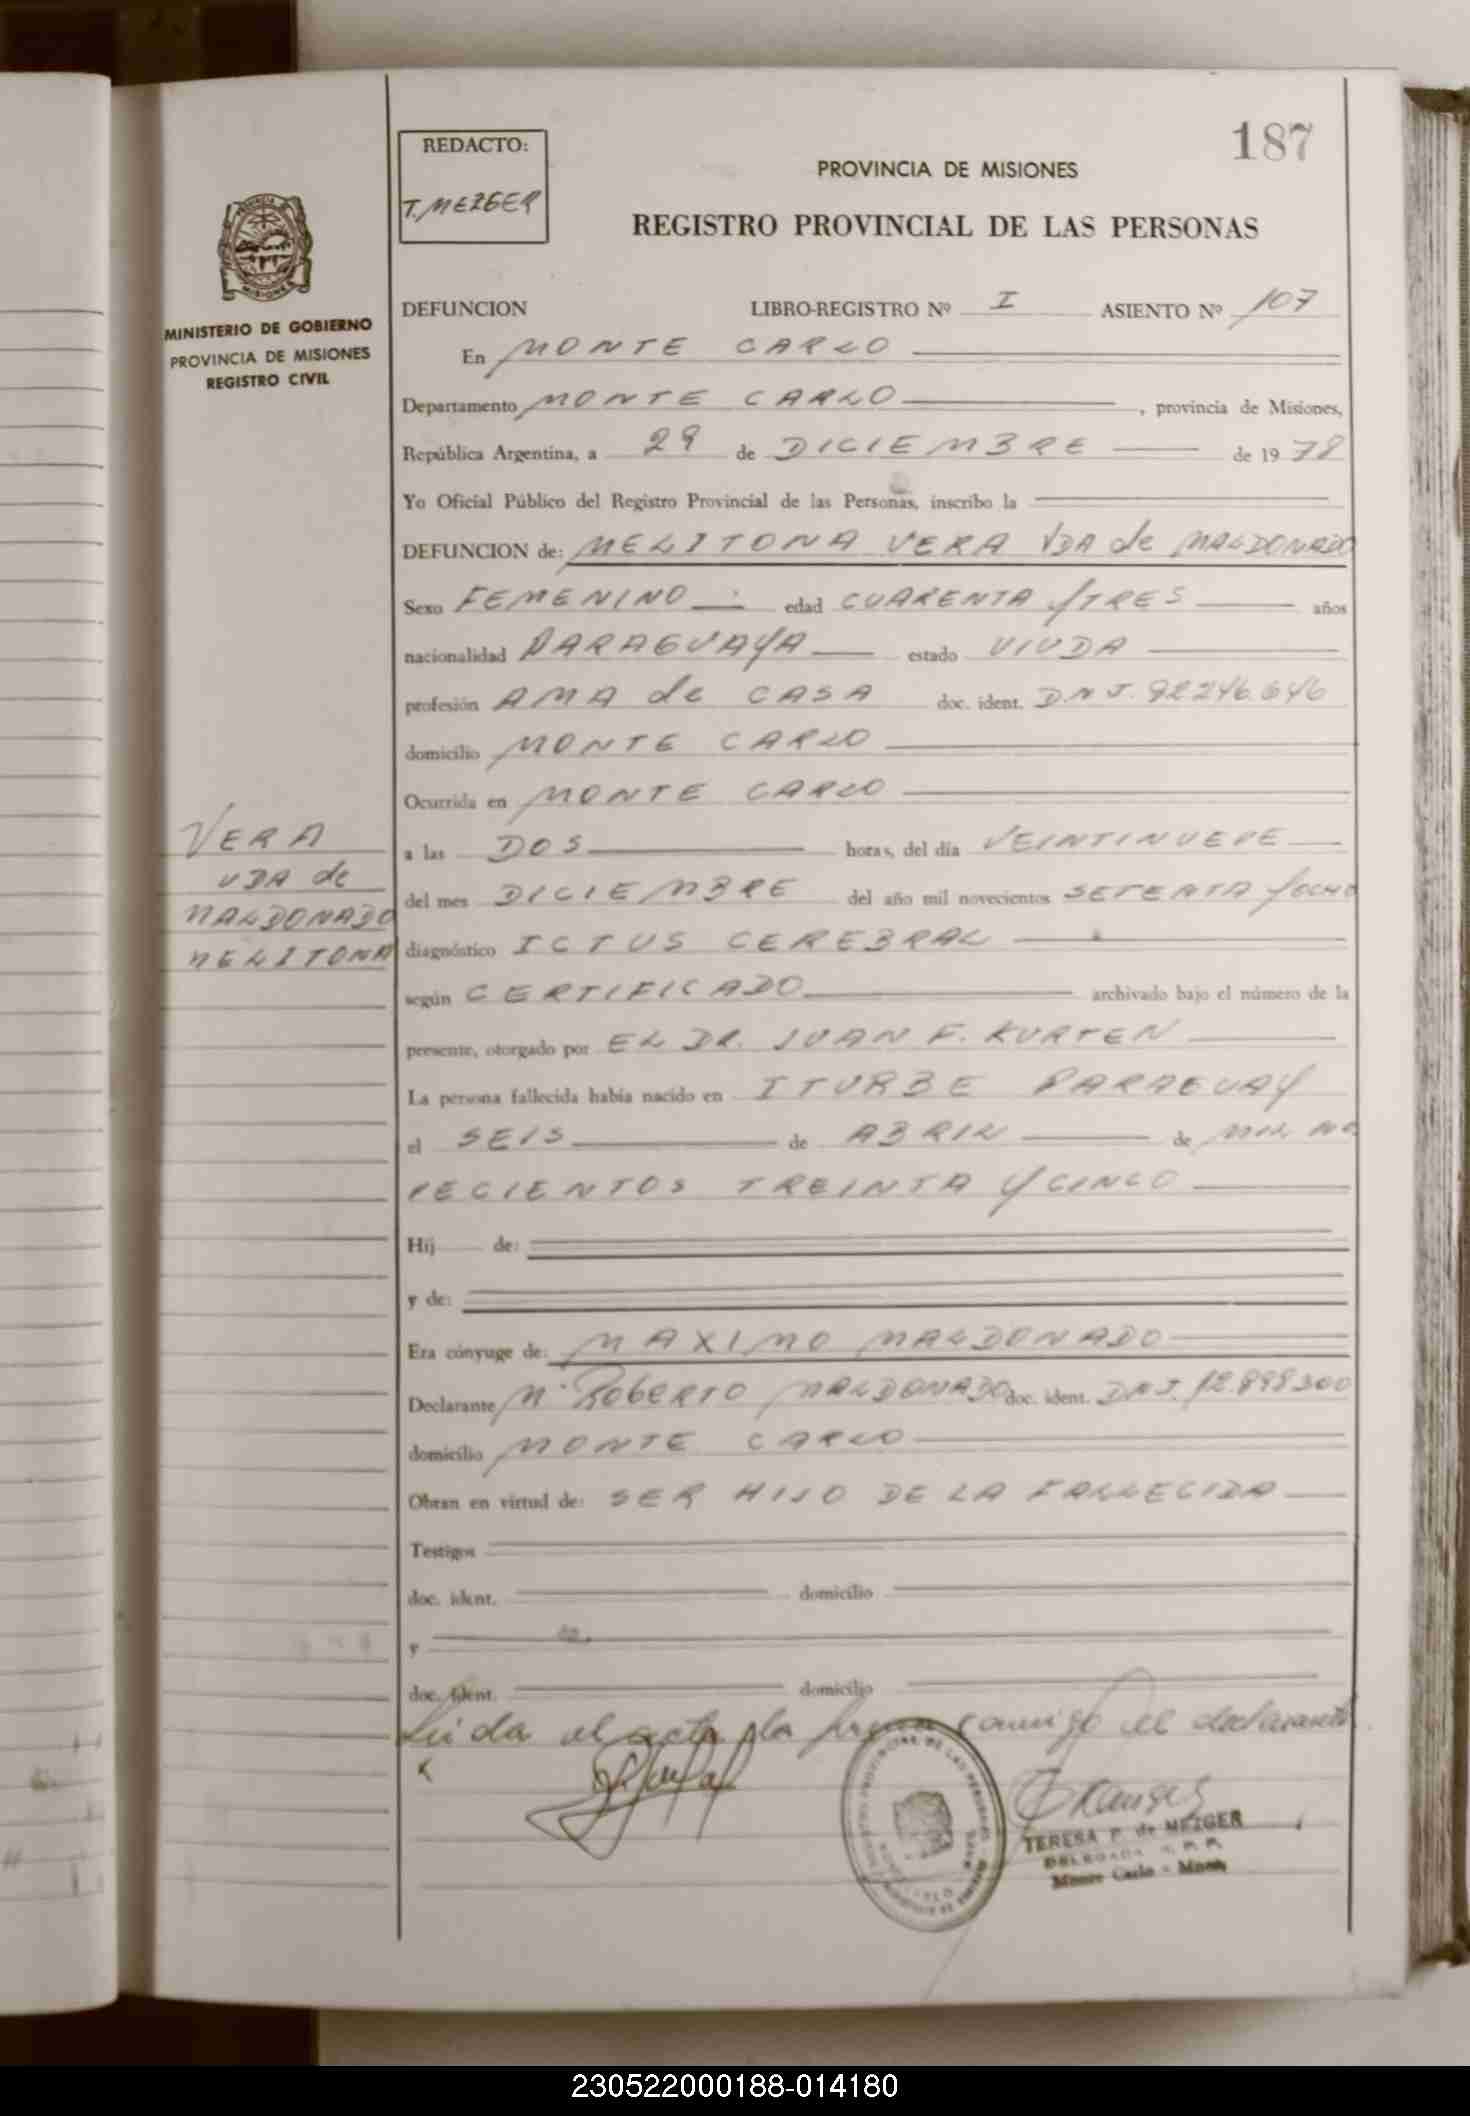 187
REDACTO:
T. MEZGER
PROVINCIA DE MISIONES
REGISTRO PROVINCIAL DE LAS PERSONAS
MINISTERIO DE GOBIERNO
PROVINCIA DE MISIONES
REGISTRO CIVIL
DEFUNCION LIBRO-REGISTRO Nº I ASIENTO Nº 107
En MONTE CARLO
Departamento MONTE CARLO , provincia de Misiones,
República Argentina, a 29 de DICIEMBRE de 1978
Yo Oficial Público del Registro Provincial de las Personas, inscribo la
DEFUNCION de: MELITONA VERA VDA de MALDONADO
Sexo FEMENINO edad CUARENTA Y TRES años
nacionalidad PARAGUAYA estado VIUDA
profesión AMA de CASA doc. ident. D.N.I. 92246.646
domicilio MONTE CARLO
Ocurrida en MONTE CARLO
VERA
VDA de
MALDONADO
MELITONA
a las DOS horas, del día VEINTINUEVE
del mes DICIEMBRE del año mil novecientos SETENTA Y OCHO
diagnóstico ICTUS CEREBRAL
según CERTIFICADO archivado bajo el número de la
presente, otorgado por EL DR. JUAN F. KURTEN
La persona fallecida había nacido en ITURBE PARAGUAY
el SEIS de ABRIL de MIL NO
VECIENTOS TREINTA Y CINCO
Hij de:
y de:
Era cónyuge de: MAXIMO MALDONADO
Declarante Mº ROBERTO MALDONADO doc. ident. DNI. 12.898300
domicilio MONTE CARLO
Obran en virtud de: SER HIJO DE LA FALLECIDA
Testigos
doc. ident. domicilio
y
doc. ident. domicilio
Leída el acta la firma conmigo el declarante
TERESA P. de MEZGER
DELEGADA R. P. P.
Monte Carlo - Mnes.
230522000188-014180